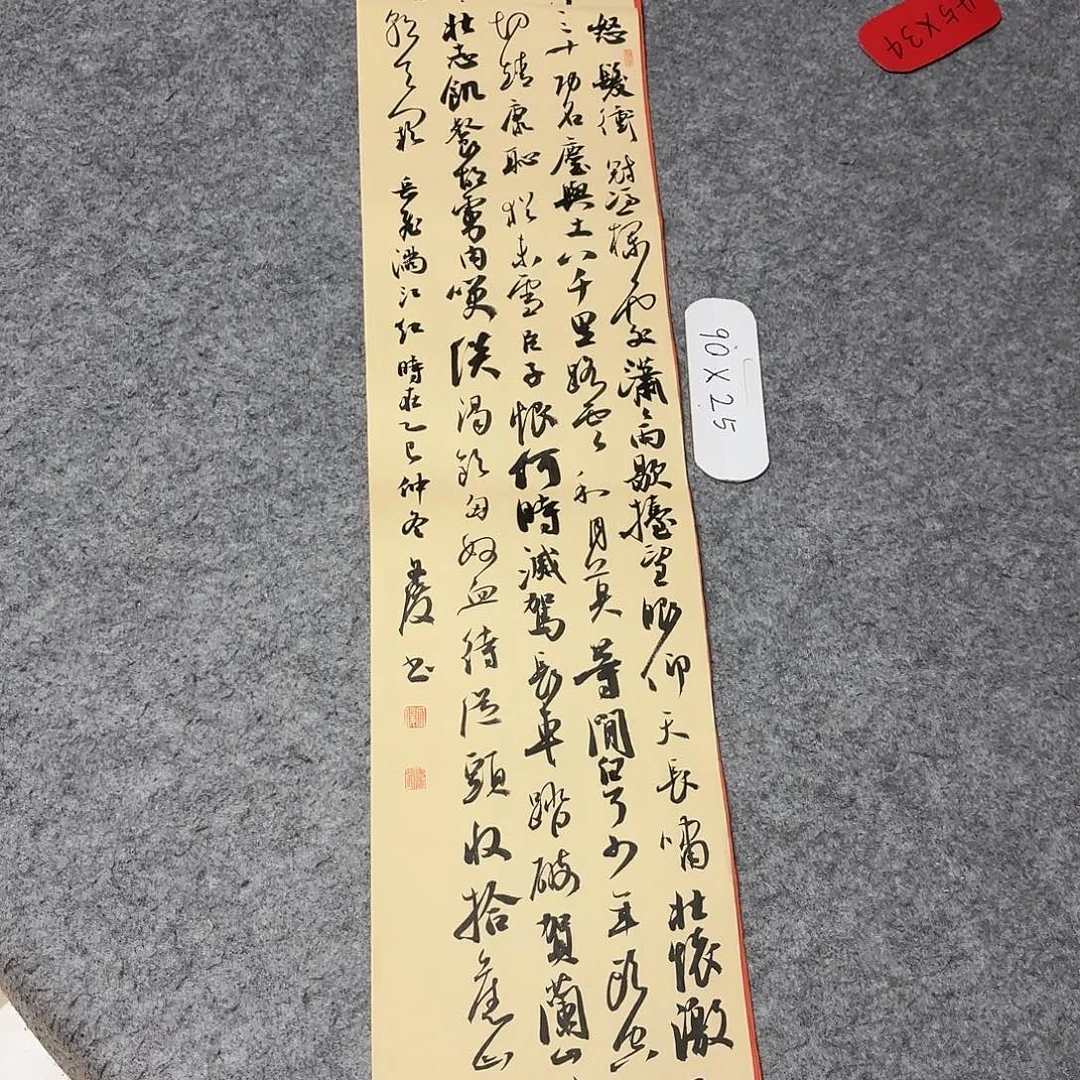 怒髮衝冠憑欄處瀟瀟雨歇擡望眼仰天長嘯壯懷激
三十功名塵與土八千里路雲和月莫等閒白了少年頭空
切靖康恥猶未雪臣子恨何時滅駕長車踏破賀蘭山
壯志飢餐胡虜肉笑談渴飲匈奴血待從頭收拾舊山
朝天闕 岳飛滿江紅 時在乙巳仲冬 書
90X25
45X34